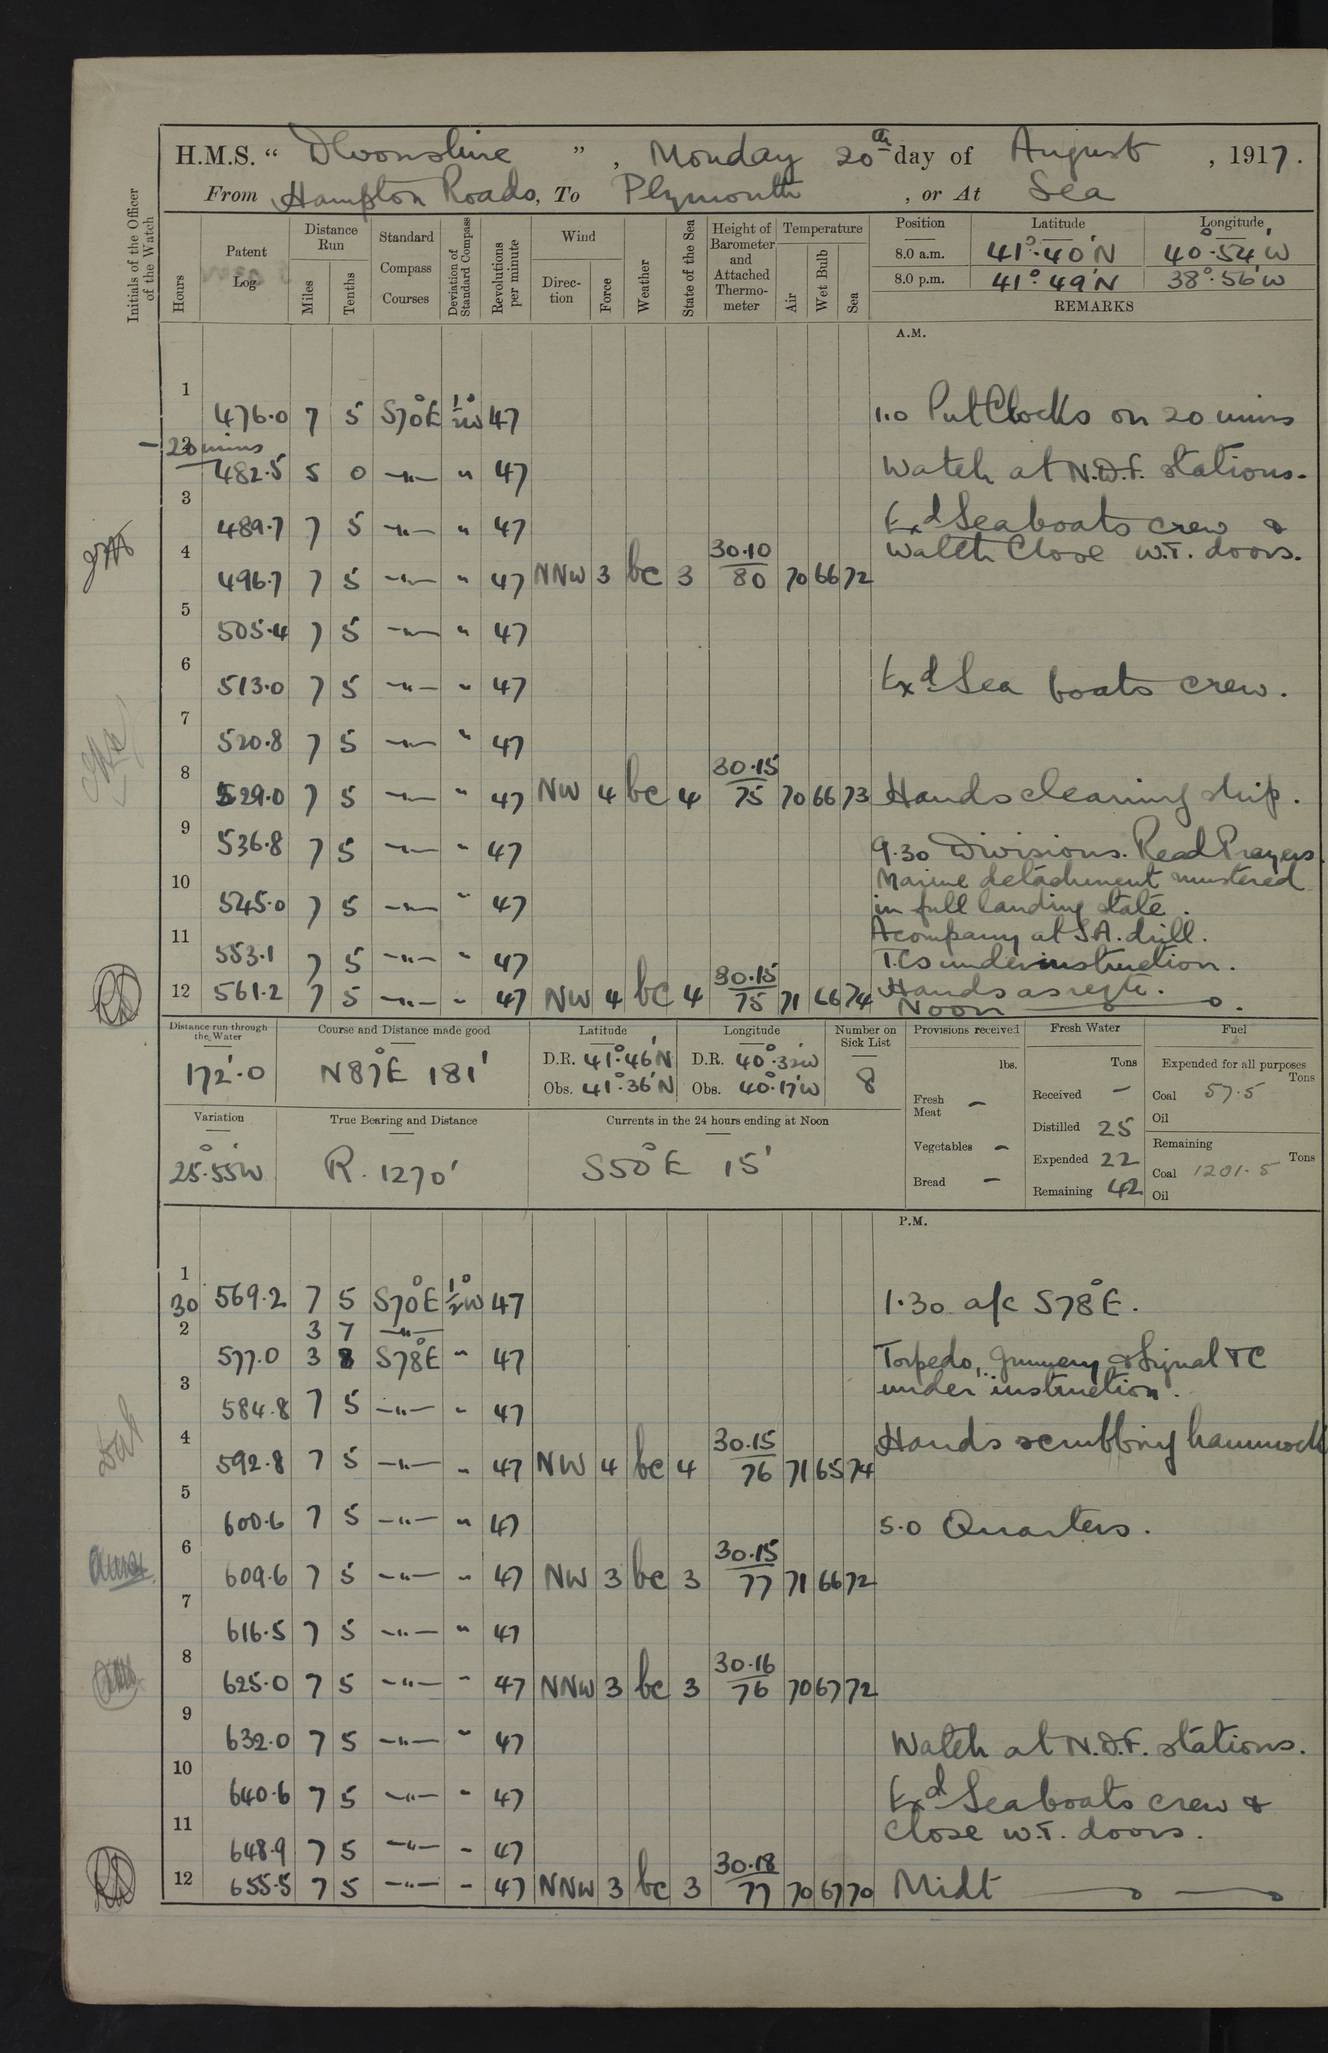 H.M.S. “ Devonshire ” , Monday 20th day of August , 1917.
From Hampton Roads, To Plymouth , or At Sea
Initials of the Officer of the Watch
Hours
Patent Log
Distance Run
Miles
Tenths
Standard Compass Courses
Deviation of Standard Compass
Revolutions per minute
Wind
Direction
Force
Weather
State of the Sea
Height of Barometer and Attached Thermometer
Temperature
Air
Wet Bulb
Sea
Position Latitude Longitude
8.0 a.m. 41°·40'N 40°·54'W
8.0 p.m. 41°·49'N 38°·56'W
REMARKS
A.M.
1 476.0 7 5 S70°E ½°W 47 1.0 Put Clocks on 20 mins
– 20 mins
2 482.5 5 0 —"— " 47 Watch at N.D.F. stations.
3 489.7 7 5 —"— " 47 Exd Sea boats crew &
Watch Close W.T. doors.
4 496.7 7 5 —"— " 47 NNW 3 bc 3 30.10/80 70 66 72
5 505.4 7 5 —"— " 47
6 513.0 7 5 —"— " 47 Exd Sea boats crew.
7 520.8 7 5 —"— " 47
8 529.0 7 5 —"— " 47 NW 4 bc 4 30.15/75 70 66 73 Hands cleaning ship.
9 536.8 7 5 —"— " 47 9.30 Divisions. Read Prayers.
Marine detachment mustered
10 545.0 7 5 —"— " 47 in full landing state.
A company at S.A. drill.
11 553.1 7 5 —"— " 47 T.Cs under instruction.
12 561.2 7 5 —"— " 47 NW 4 bc 4 30.15/75 71 66 74 Hands as reqte.
Noon
Distance run through the Water
172'.0
Course and Distance made good
N87°E 181'
Latitude
D.R. 41°·46'N
Obs. 41°·36'N
Longitude
D.R. 40°·32'W
Obs. 40°·17'W
Number on Sick List
8
Provisions received
lbs.
Fresh Meat –
Vegetables –
Bread –
Fresh Water
Tons
Received –
Distilled 25
Expended 22
Remaining 42
Fuel
Expended for all purposes
Tons
Coal 57.5
Oil
Remaining
Tons
Coal 1201.5
Oil
Variation
25°·55'W
True Bearing and Distance
R. 1270'
Currents in the 24 hours ending at Noon
S50°E 15'
P.M.
1 569.2 7 5 S70°E ½°W 47
30 3 7 —"— 1.30 a/c S78°E.
2 577.0 3 8 S78°E " 47 Torpedo, Gunnery & Signal TC
under instruction.
3 584.8 7 5 —"— " 47
4 592.8 7 5 —"— " 47 NW 4 bc 4 30.15/76 71 65 74 Hands scrubbing hammock
5 600.6 7 5 —"— " 47 5.0 Quarters.
6 609.6 7 5 —"— " 47 NW 3 bc 3 30.15/77 71 66 72
7 616.5 7 5 —"— " 47
8 625.0 7 5 —"— " 47 NNW 3 bc 3 30.16/76 70 67 72
9 632.0 7 5 —"— " 47 Watch at N.D.F. stations.
10 640.6 7 5 —"— " 47 Exd Sea boats crew &
11 648.9 7 5 —"— " 47 Close W.T. doors.
12 655.5 7 5 —"— " 47 NNW 3 bc 3 30.18/77 70 67 70 Midt